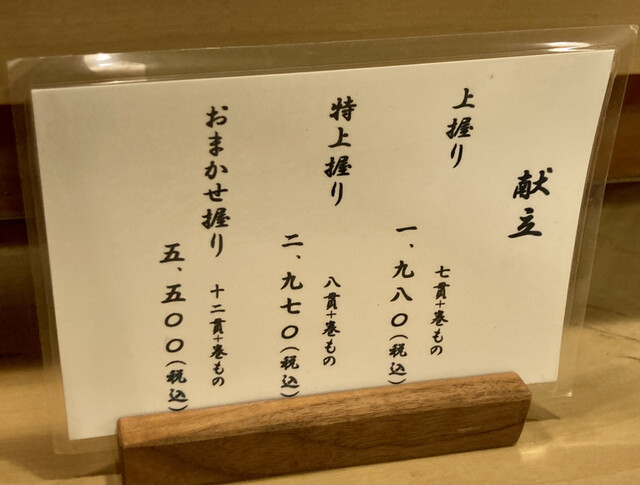 献立
上握り
七貫+巻もの
一、九八〇(税込)
特上握り
八貫+巻もの
二、九七〇(税込)
おまかせ握り
十二貫+巻もの
五、五〇〇(税込)